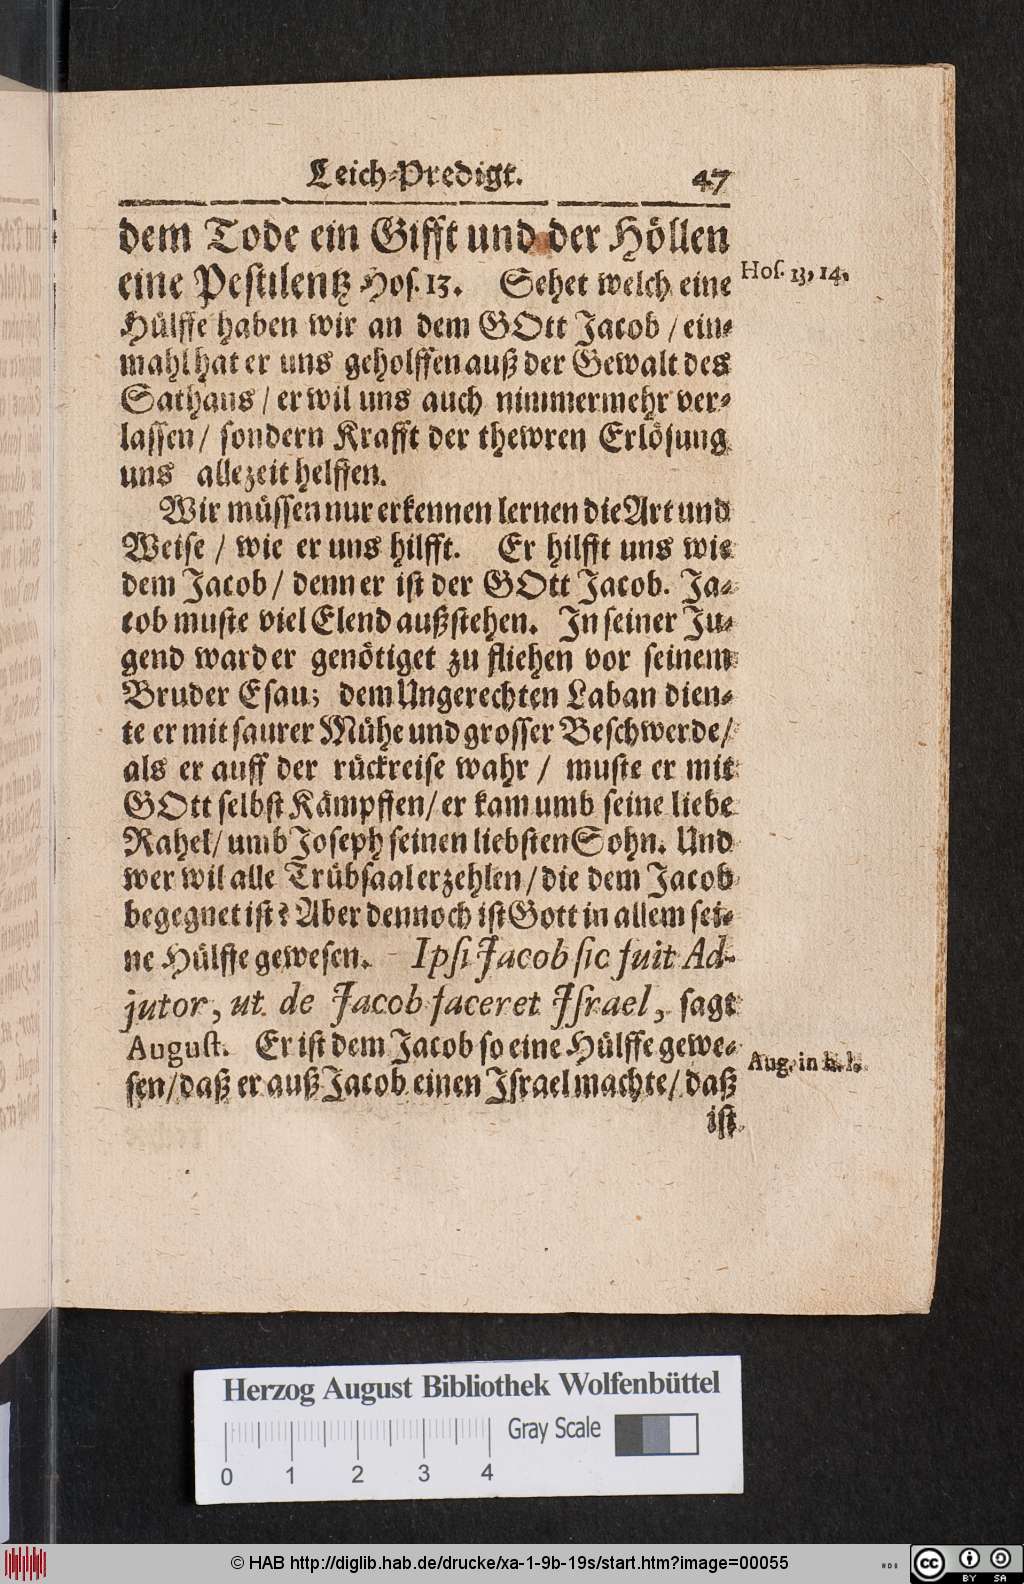 Leich-Predigt. 47
dem Tode ein Gifft und der Höllen
eine Pestilentz Hos. 13. Sehet welch eine
Hos. 13, 14.
Hülffe haben wir an dem GOtt Jacob / ein-
mahl hat er uns geholffen auß der Gewalt des
Sathans / er wil uns auch nimmermehr ver-
lassen / sondern Krafft der thewren Erlösung
uns allezeit helffen.
Wir müssen nur erkennen lernen die Art und
Weise / wie er uns hilfft. Er hilfft uns wie
dem Jacob / denn er ist der GOtt Jacob. Ja-
cob muste viel Elend außstehen. In seiner Ju-
gend ward er genötiget zu fliehen vor seinem
Bruder Esau; dem Ungerechten Laban dien-
te er mit saurer Mühe und grosser Beschwerde /
als er auff der rückreise wahr / muste er mit
GOtt selbst Kämpffen / er kam umb seine liebe
Rahel / umb Joseph seinen liebsten Sohn. Und
wer wil alle Trübsaal erzehlen / die dem Jacob
begegnet ist? Aber dennoch ist Gott in allem sei-
ne Hülffe gewesen. Ipsi Jacob sic fuit Ad-
jutor, ut de Jacob faceret Israel, sagt
August. Er ist dem Jacob so eine Hülffe gewe-
Aug. in h. l.
sen / daß er auß Jacob einen Israel machte / daß
ist
Herzog August Bibliothek Wolfenbüttel
Gray Scale
0 1 2 3 4
© HAB http://diglib.hab.de/drucke/xa-1-9b-19s/start.htm?image=00055
cc BY SA